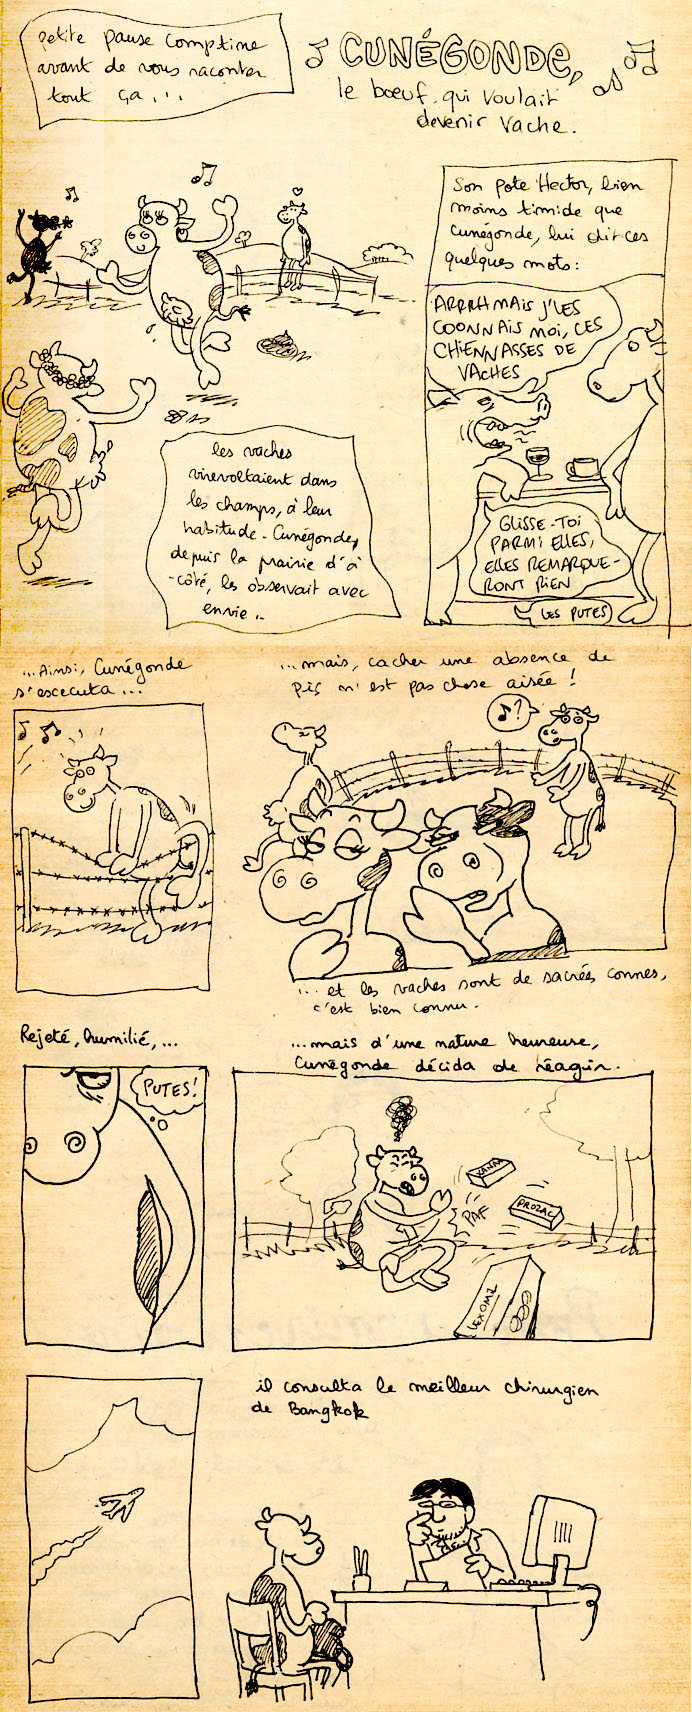 petite pause comptine
avant de vous raconter
tout ça...
CUNÉGONDE,
le bœuf qui voulait
devenir vache.
Son pote Hector, bien
moins timide que
Cunégonde, lui dit ces
quelques mots:
ARRRH MAIS J'LES
COONNAIS MOI, CES
CHIENNASSES DE
VACHES
les vaches
virevoltaient dans
les champs, à leur
habitude. Cunégonde,
depuis la prairie d'à
-côté, les observait avec
envie..
GLISSE-TOI
PARMI ELLES,
ELLES REMARQUE-
RONT RIEN
(LES PUTES)
...Ainsi, Cunégonde
s'execcuta...
...mais, cacher une absence de
pis n'est pas chose aisée !
?
...et les vaches sont de sacrées connes,
c'est bien connu.
Rejeté, humilié,...
PUTES!
...mais d'une nature heureuse,
Cunégonde décida de réagir.
XANAX
PROZAC
PAF
LEXOMIL
il consulta le meilleur chirurgien
de Bangkok